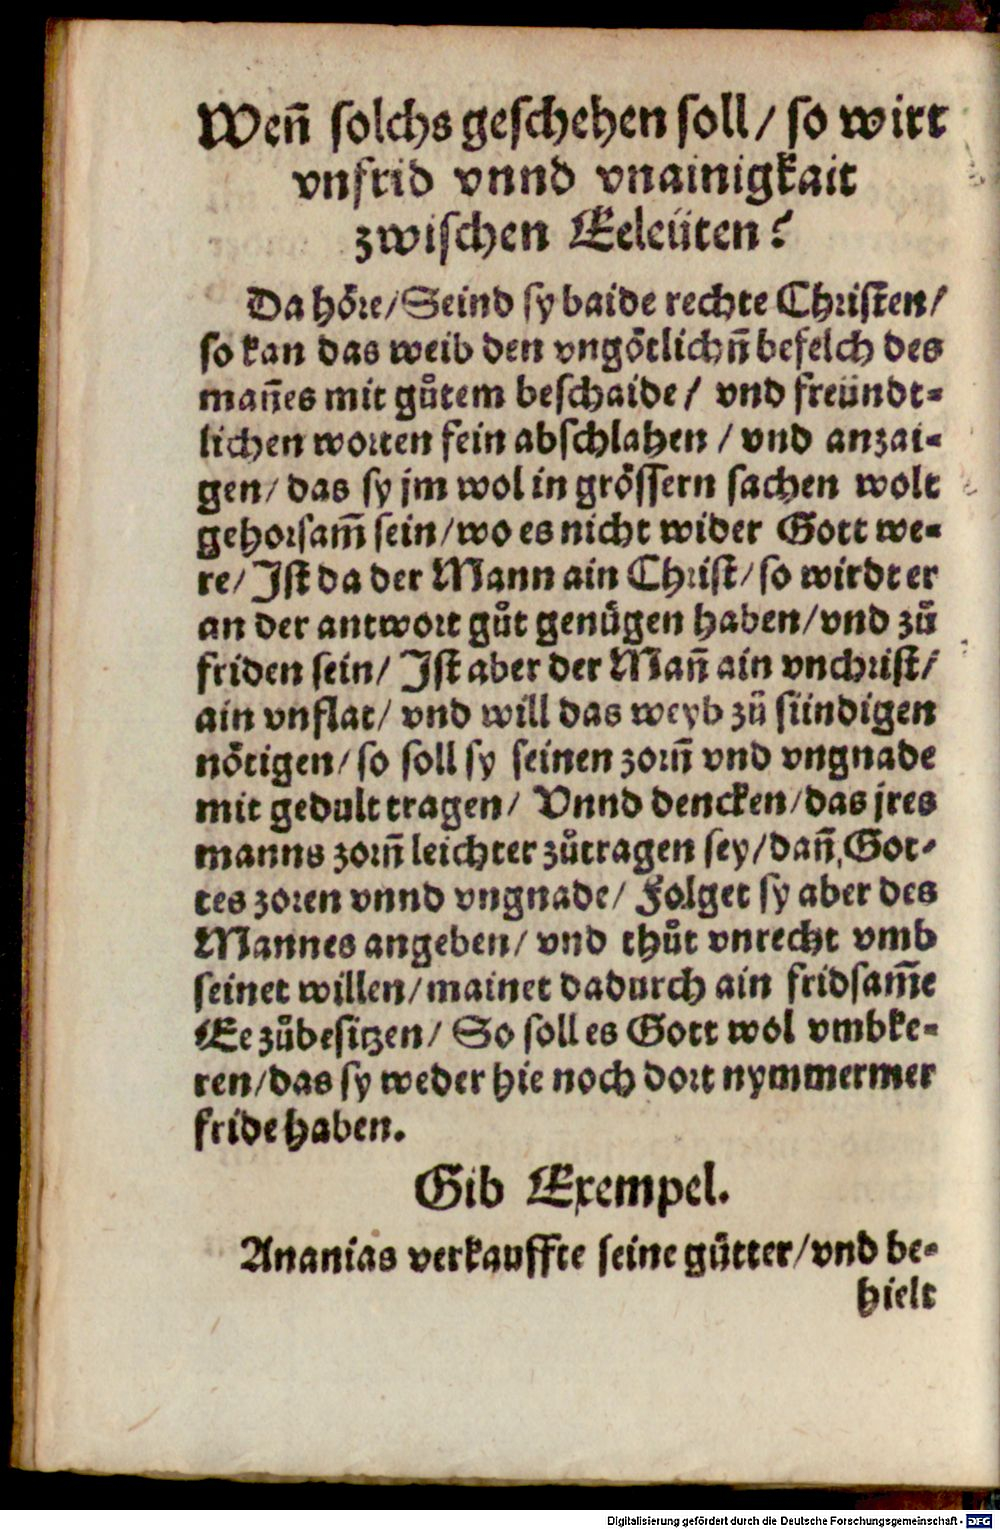 Weñ ſolchs geſchehen ſoll / ſo wirt
vnfrid vnnd vnainigkait
zwiſchen Eeleüten?
Da hoͤre / Seind ſy baide rechte Chriſten /
ſo kan das weib den vngoͤtlichñ befelch des
mañes mit guͦtem beſchaide / vnd freündt⸗
lichen worten fein abſchlahen / vnd anzai⸗
gen / das ſy jm wol in groͤſſern ſachen wolt
gehorſam̄ ſein / wo es nicht wider Gott we⸗
re / Iſt da der Mann ain Chriſt / ſo wirdt er
an der antwort guͦt genuͤgen haben / vnd zuͦ
friden ſein / Iſt aber der Mañ ain vnchriſt /
ain vnflat / vnd will das weyb zuͦ ſündigen
noͤtigen / ſo ſoll ſy ſeinen zorn̄ vnd vngnade
mit gedult tragen / Vnnd dencken / das jres
manns zorn̄ leichter zuͦtragen ſey / dañ Got⸗
tes zoren vnnd vngnade / Folget ſy aber des
Mannes angeben / vnd thuͦt vnrecht vmb
ſeinet willen / mainet dadurch ain fridſam̄e
Ee zuͦbeſitzen / So ſoll es Gott wol vmbke⸗
ren / das ſy weder hie noch dort nymmermer
fride haben.
Gib Exempel.
Ananias verkauffte ſeine guͤtter / vnd be⸗
hielt
Digitalisierung gefördert durch die Deutsche Forschungsgemeinschaft - DFG